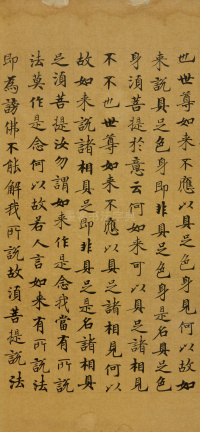 也世尊如来不應以具足色身見何以故如
来說具足色身即非具足色身是名具足色
身須菩提於意云何如来可以具足諸相見
不不也世尊如来不應以具足諸相見何以
故如来說諸相具足即非具足是名諸相具
足須菩提汝勿謂如来作是念我當有所說
法莫作是念何以故若人言如来有所說法
即為謗佛不能解我所說故須菩提說法